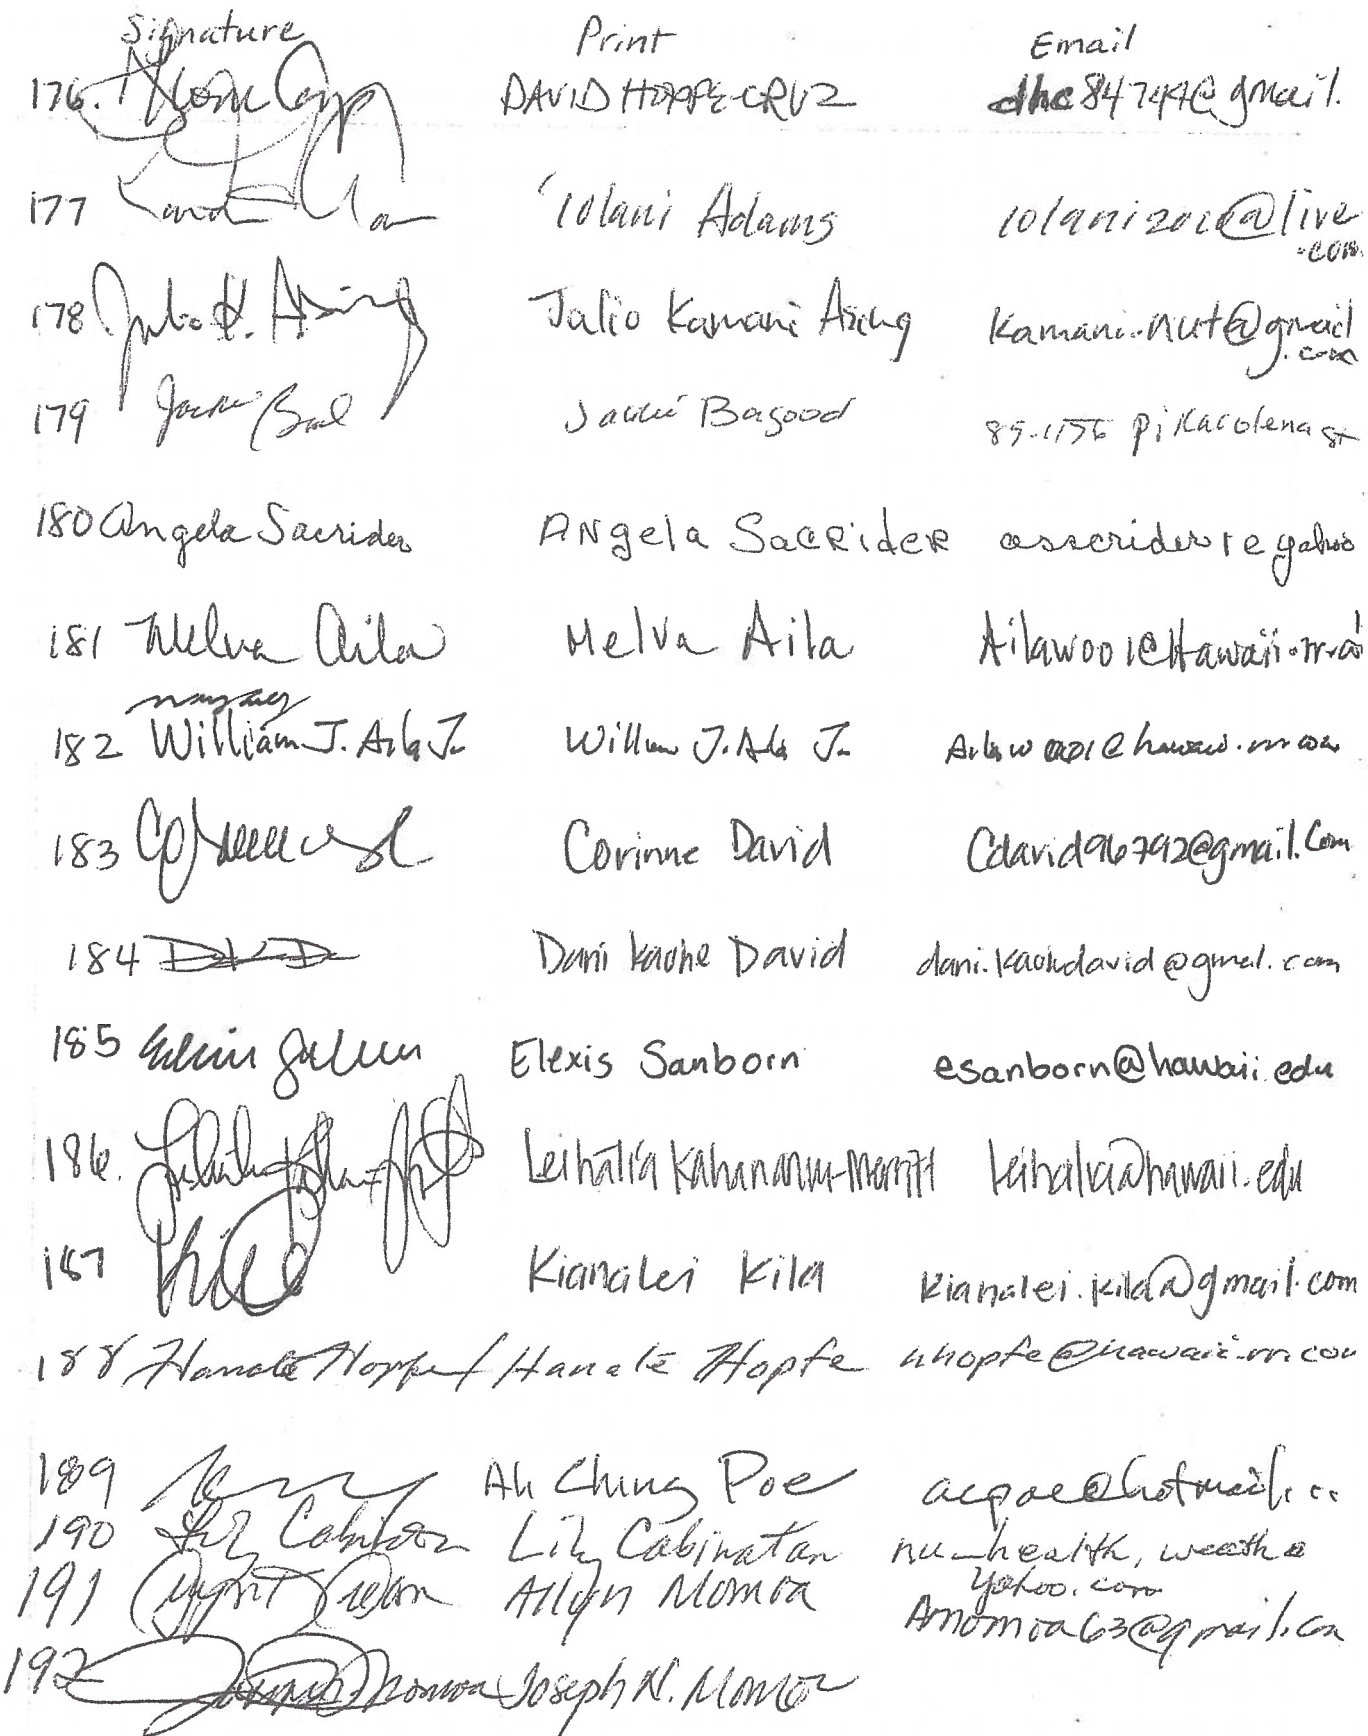 Signature Print Email
176. DAVID HOPPE-CRUZ dhc84744@gmail.
177 'Iolani Adams iolani2010@live
.com
178 Julio K. Asing Julio Kamani Asing kamani.nut@gmail
.com
179 Jackie Bagood 89-1156 Pikaiolena st
180 Angela Sacrider ANgela SacRideR assacrider1@yahoo
181 Melva Aila Melva Aila Ailaw001@Hawaii.rr.co
182 William J. Aila Jr William J. Aila Jr Ailaw001@hawaii.rr.com
183 Corinne David Cdavid96792@gmail.com
184 DKD Dani Kaohe David
185 Elexis Sanborn esanborn@hawaii.edu
186. Leihali'a Kahananui-Merritt leihalia@hawaii.edu
187 Kianalei Kila Kianalei.kila@gmail.com
188 Hanalē Hopfe / Hanalē Hopfe hhopfe@hawaii.rr.com
189 Ah Ching Poe acpoe@hotmail.
190 Lily Cabinatan Lily Cabinatan nu_health, wealth@
yahoo.com
191 Allyn Momoa Amomoa63@gmail.com
192 Momoa Joseph N. Momoa